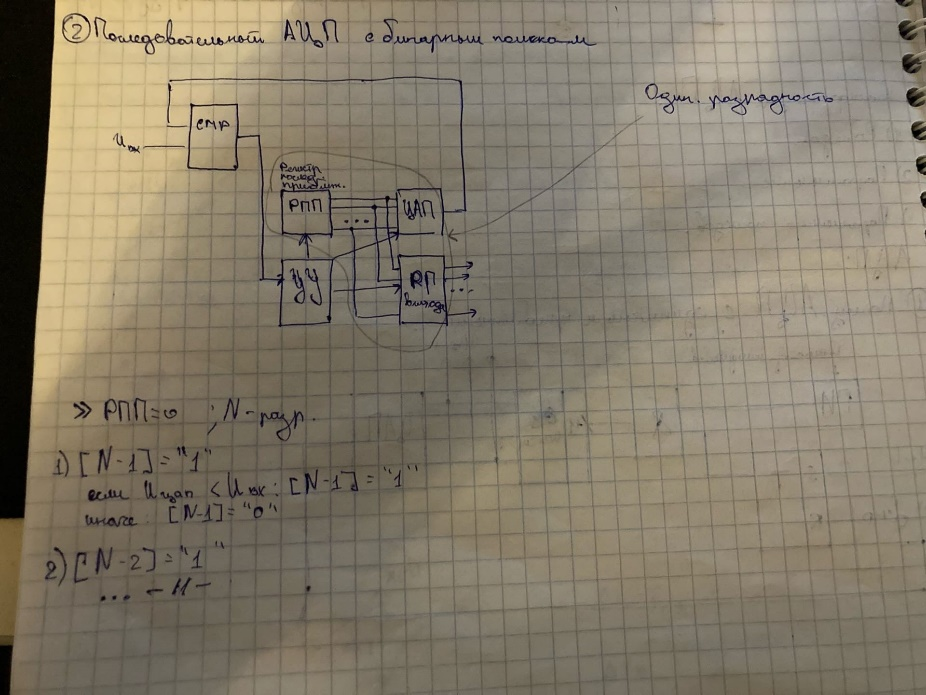 ② Последовательный АЦП с бинарным поиском
Один. разрядность
CMP
Uвх
Регистр
послед.
приближ.
РПП
...
ЦАП
УУ
RП
выхода
...
>> РПП=0 ; N-разр.
1) [N-1]="1"
если Uцап < Uвх: [N-1]="1"
иначе: [N-1]="0"
2) [N-2]="1"
... -11-